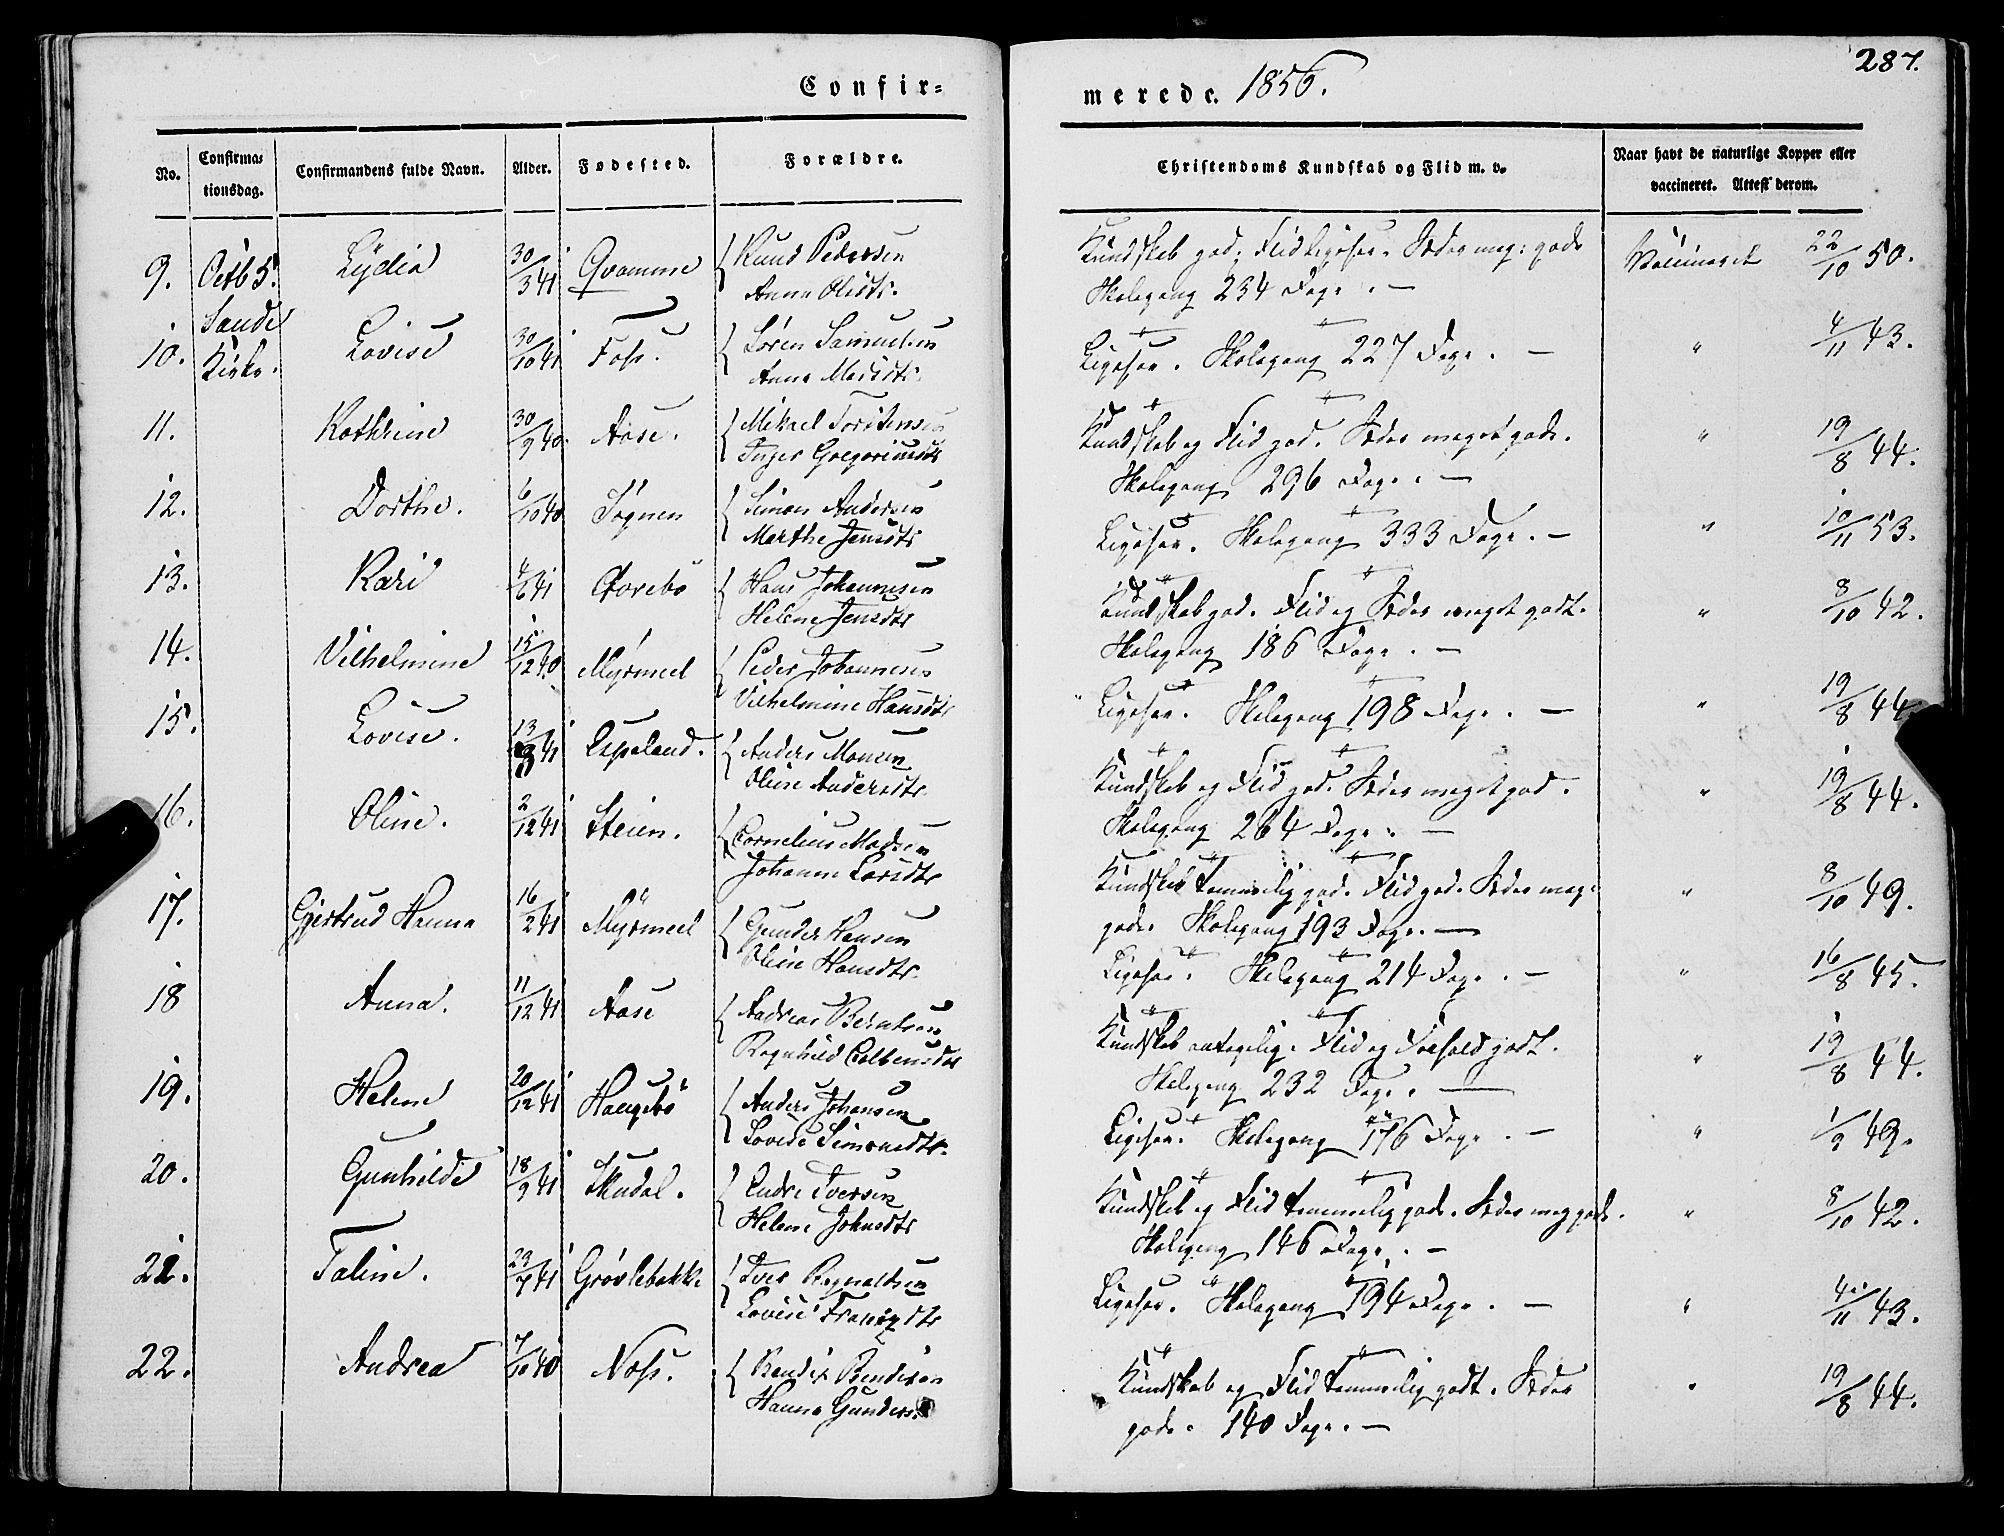 Confir=
merede. 1856.
287.
No.
Confirma=
tionsdag.
Confirmandens fulde Navn.
Alder.
Fødested.
Forældre.
Christendoms Kundskab og Flid m. v.
Naar havt de naturlige Kopper eller
vaccineret. Attest derom.
9. Octb 5. Lydia 30/3 41 Qvamme Knud Pedersen Kundskab god, Flid ligesaa. Sæder meg: gode Vaccineret 22/10 50.
Anna Olsdtr. Skolegang 234 Dage. —
Sande
Kirke.
10. Lovise 30/10 41 Foss. Søren Samuelsen Ligesaa. Skolegang 227 Dage. — " 4/11 43.
Anna
11. Kathrine 30/9 40. Aase. Mikael Torstensen Kundskab og Flid god. Sæder meget gode. " 19/8 44.
Inger Gregoriusdtr Skolegang 296 Dage. —
12. Dorthe. 6/10 40 Sognen Simon Andersen Ligesaa. Skolegang 333 Dage. — " 10/11 53.
Marthe Jensdtr
13. Kari 4/6 41 Hans Johannesen Kundskab god. Flid og Sæder meget godt. " 8/10 42.
Helene Jensdtr Skolegang 186 Dage. —
14. Vilhelmine 15/12 40 Myrmeel Peder Johannesen Ligesaa. Skolegang 198 Dage. — " 19/8 44.
Vilhelmine Hansdtr
15. Lovise. 13/9 41 Espeland. Anders Monsen Kundskab og Flid god. Sæder meget god. " 19/8 44.
Oline Andersdtr Skolegang 264 Dage. —
16. Oline. 2/12 41 Steien. Cornelius Madsen Kundskab temmelig god. Flid god. Sæder meg: " 8/10 49.
Johanne Larsdtr gode. Skolegang 193 Dage. —
17. Gjertrud Hanna 16/2 41 Myrmeel Gunder Hansen Ligesaa. Skolegang 214 Dage. — " 16/8 45.
Oline Hansdtr.
18 Anna. 11/12 41 Aase Andreas Berntsen Kundskab antagelig. Flid og Forhold godt. " 19/8 44.
Ragnhild Skolegang 232 Dage. —
19. Helene 20/12 41 Haugebø Anders Johansen Ligesaa. Skolegang 176 Dage. — " 1/9 49.
Lovise Simonsdtr.
20. Gunhilde 18/9 41 Skudal. Endre Iversen Kundskab og Flid temmelig gode. Sæder meg gode. " 8/10 42.
Helene Johnsdtr Skolegang 146 Dage. —
21. Taline. 23/7 41 Grøvlebakke Iver Ragnaldsen Ligesaa. Skolegang 194 Dage. — " 4/11 43.
Lovise
22. Andrea 7/10 40 Noss. Bendix Bendixen Kundskab og Flid temmelig godt. Sæder " 19/8 44.
Hanna Gunders. gode. 140 Dage. —